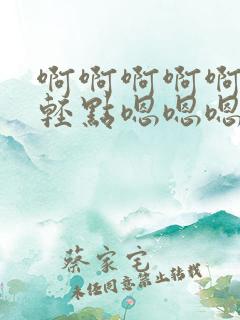 啊啊啊啊啊
轻點嗯嗯嗯
蔡家宅
未经同意禁止转载